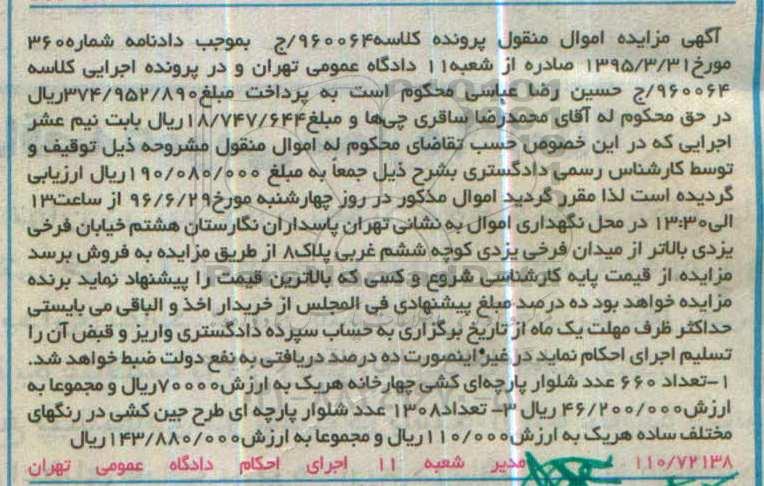 آگهی مزایده اموال منقول پرونده کلاسه۹۶۰۰۶۴/ج بموجب دادنامه شماره۳۶۰
مورخ۱۳۹۵/۳/۳۱ صادره از شعبه۱۱ دادگاه عمومی تهران و در پرونده اجرایی کلاسه
۹۶۰۰۶۴/ج حسین رضا عباسی محکوم است به پرداخت مبلغ۳۷۴/۹۵۲/۸۹۰ریال
در حق محکوم له آقای محمدرضا ساقری چی‌ها و مبلغ۱۸/۷۴۷/۶۴۴ریال بابت نیم عشر
اجرایی که در این خصوص حسب تقاضای محکوم له اموال منقول مشروحه ذیل توقیف و
توسط کارشناس رسمی دادگستری بشرح ذیل جمعاً به مبلغ ۱۹۰/۰۸۰/۰۰۰ریال ارزیابی
گردیده است لذا مقرر گردید اموال مذکور در روز چهارشنبه مورخ۹۶/۶/۲۹ از ساعت۱۳
الی۱۳:۳۰ در محل نگهداری اموال به نشانی تهران پاسداران نگارستان هشتم خیابان فرخی
یزدی بالاتر از میدان فرخی یزدی کوچه ششم غربی پلاک۸ از طریق مزایده به فروش برسد
مزایده از قیمت پایه کارشناسی شروع و کسی که بالاترین قیمت را پیشنهاد نماید برنده
مزایده خواهد بود ده درصد مبلغ پیشنهادی فی المجلس از خریدار اخذ و الباقی می بایستی
حداکثر ظرف مهلت یک ماه از تاریخ برگزاری به حساب سپرده دادگستری واریز و قبض آن را
تسلیم اجرای احکام نماید در غیر اینصورت ده درصد دریافتی به نفع دولت ضبط خواهد شد.
۱-تعداد ۶۶۰ عدد شلوار پارچه‌ای کشی چهارخانه هریک به ارزش۷۰۰۰۰ریال و مجموعا به
ارزش۴۶/۲۰۰/۰۰۰ ریال ۳- تعداد۱۳۰۸ عدد شلوار پارچه ای طرح جین کشی در رنگهای
مختلف ساده هریک به ارزش۱۱۰/۰۰۰ریال و مجموعا به ارزش۱۴۳/۸۸۰/۰۰۰ریال
۱۱۰/۷۲۱۳۸ مدیر شعبه ۱۱ اجرای احکام دادگاه عمومی تهران